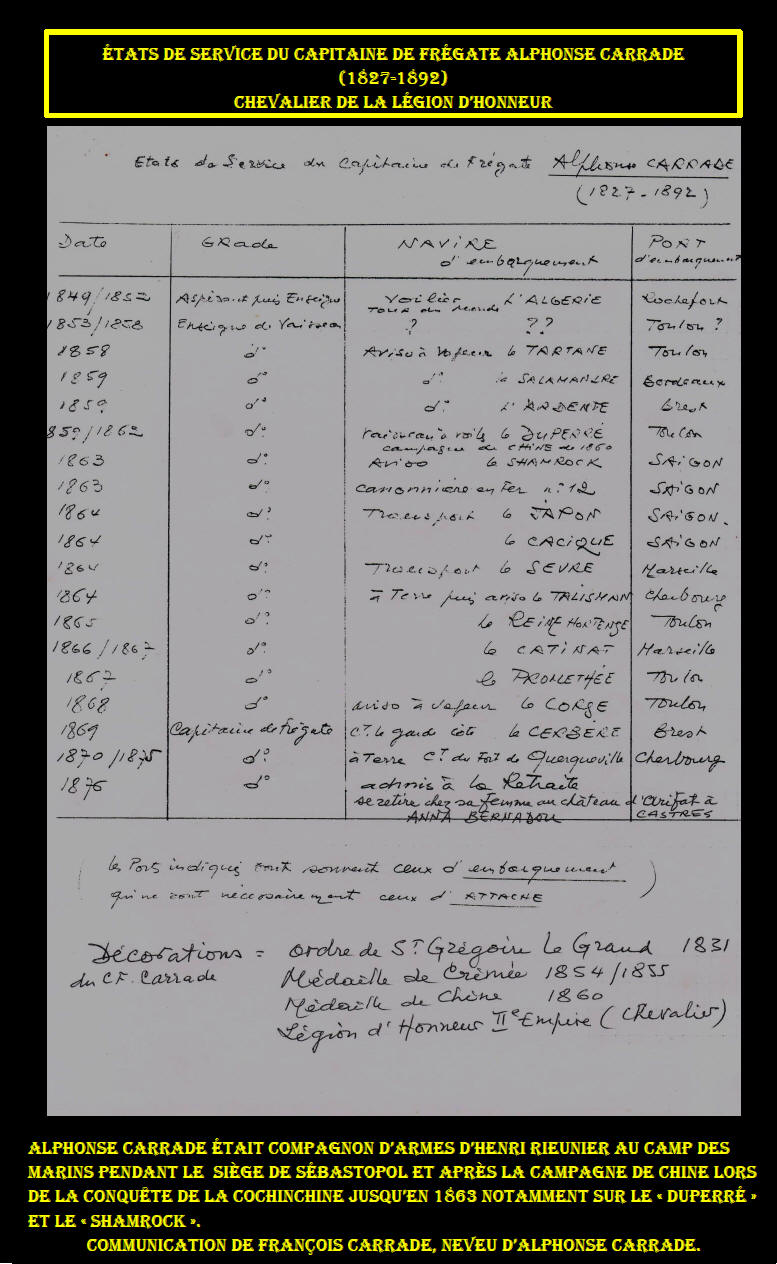 ÉTATS DE SERVICE DU CAPITAINE DE FRÉGATE ALPHONSE CARRADE
(1827-1892)
CHEVALIER DE LA LÉGION D'HONNEUR
Etats de Service du Capitaine de Frégate Alphonse CARRADE
(1827-1892)
Date GRade NAViRE d'embarquement PORT d'embarquement
1849/1852 Aspirant puis Enseigne Voilier L'ALGERIE Rochefort
TOUR du Monde
1853/1858 Enseigne de Vaisseau ? ?? Toulon ?
1858 d° Aviso à Vapeur le TARTARE Toulon
1859 d° d° la SALAMANDRE Bordeaux
1859 d° d° L'ARDENTE Brest
859/1862 d° Vaisseau à voile le DUPERRÉ Toulon
campagne de CHINE de 1860
1863 d° Aviso le SHAMROCK SAiGON
1863 d° canonnière en Fer n° 12 SAiGON
1864 d° Transport le JAPON SAiGON.
1864 d° le CACiQUE SAiGON
1864 d° Transport le SEVRE Marseille
1864 d° à Terre puis aviso le TALISMAN Cherbourg
1865 d° la REiNE HORTENSE Toulon
1866/1867 d° le CATiNAT Marseille
1867 d° le PROMETHÉE Toulon
1868 d° aviso à vapeur le CORSE Toulon
1869 Capitaine de Frégate Ct. le garde côte le CERBÈRE Brest
1870/1875 d° à Terre Ct. du Fort de Querqueville Cherbourg
1876 d° admis à la Retraite
se retire chez sa femme au château d'Arifat à
ANNA BERNADOU CASTRES
(les Ports indiqués sont souvent ceux d'embarquement
qui ne sont nécessairement ceux d'ATTACHE)
Décorations = ordre de St. Grégoire Le Grand 1831
du C.F. Carrade Médaille de Crimée 1854/1855
Médaille de Chine 1860
Légion d'Honneur IIe Empire (Chevalier)
ALPHONSE CARRADE ÉTAIT COMPAGNON D'ARMES D'HENRI RIEUNIER AU CAMP DES
MARINS PENDANT LE SIÈGE DE SÉBASTOPOL ET APRÈS LA CAMPAGNE DE CHINE LORS
DE LA CONQUÊTE DE LA COCHINCHINE JUSQU'EN 1863 NOTAMMENT SUR LE « DUPERRÉ »
ET LE « SHAMROCK ».
COMMUNICATION DE FRANÇOIS CARRADE, NEVEU D'ALPHONSE CARRADE.